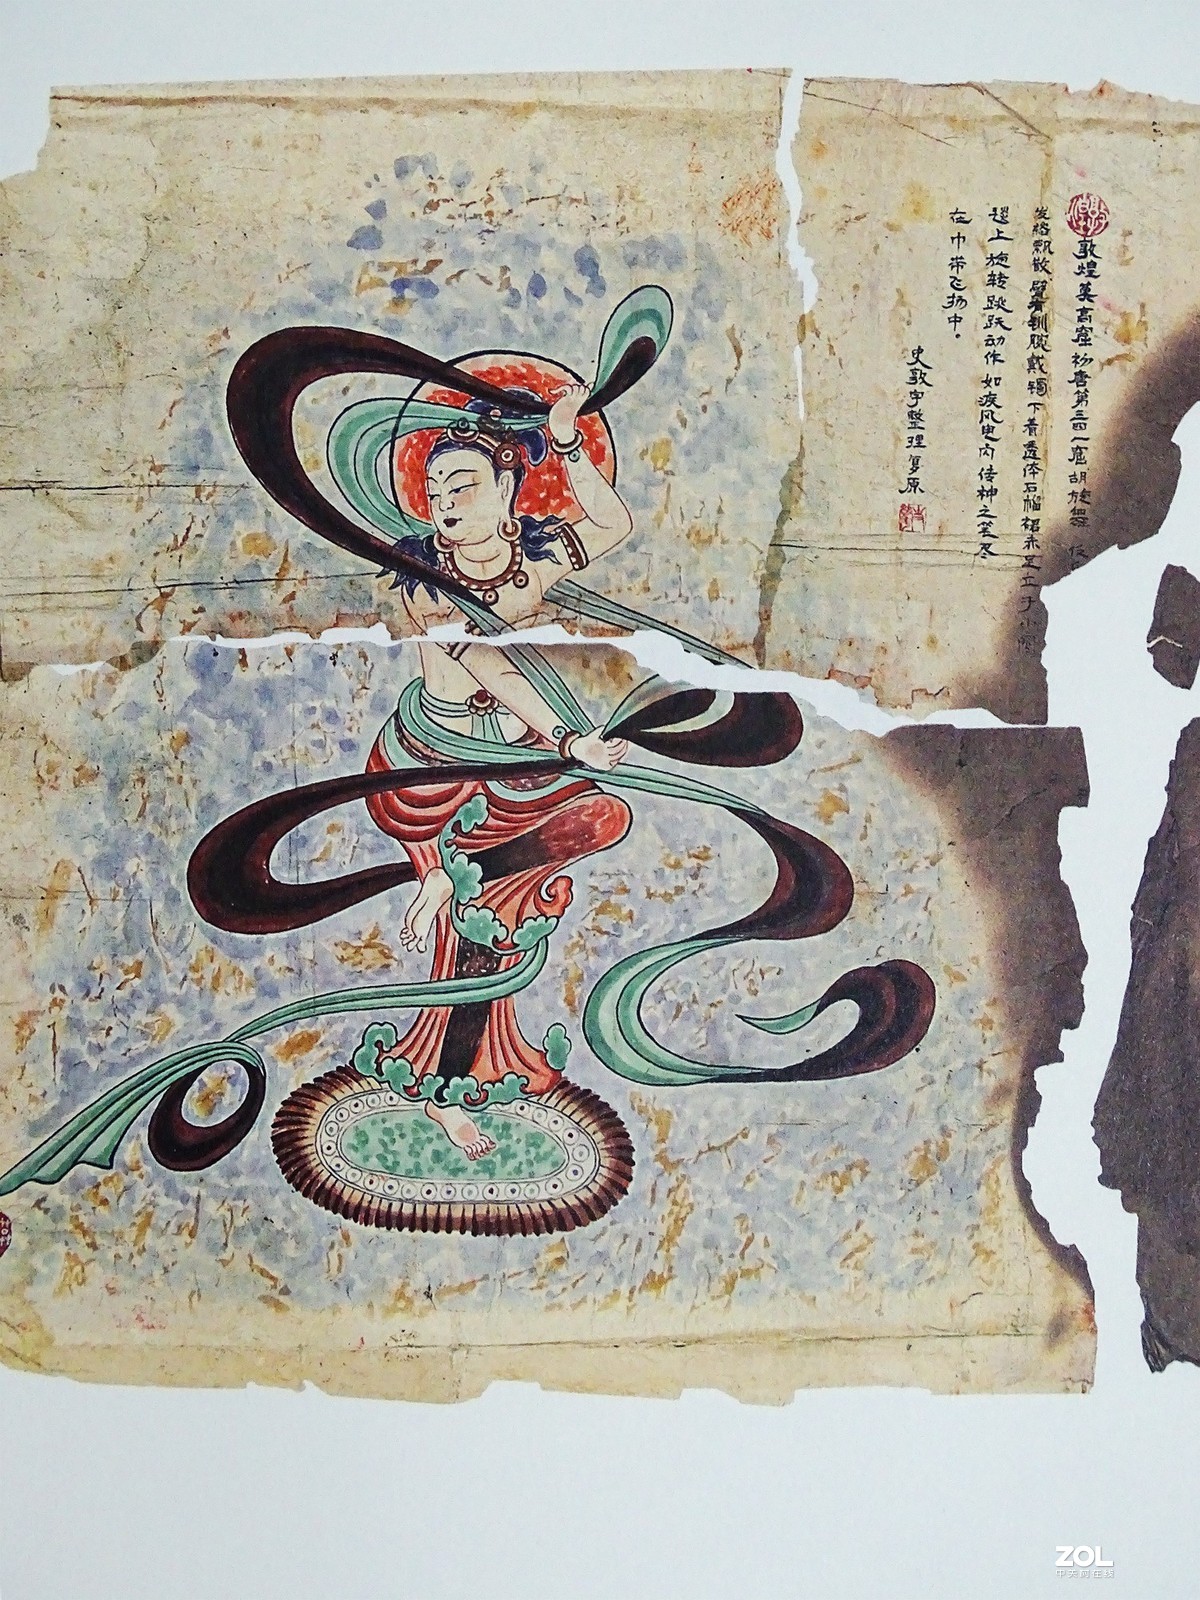 敦煌莫高窟初唐第三四一窟胡旋舞伎
发络飘散臂着钏腕戴镯下着透体石榴裙赤足立于小
毯上旋转跳跃动作如疾风电闪传神之笔尽
在巾带飞扬中。
史敦宇整理复原
ZOL
中关村在线